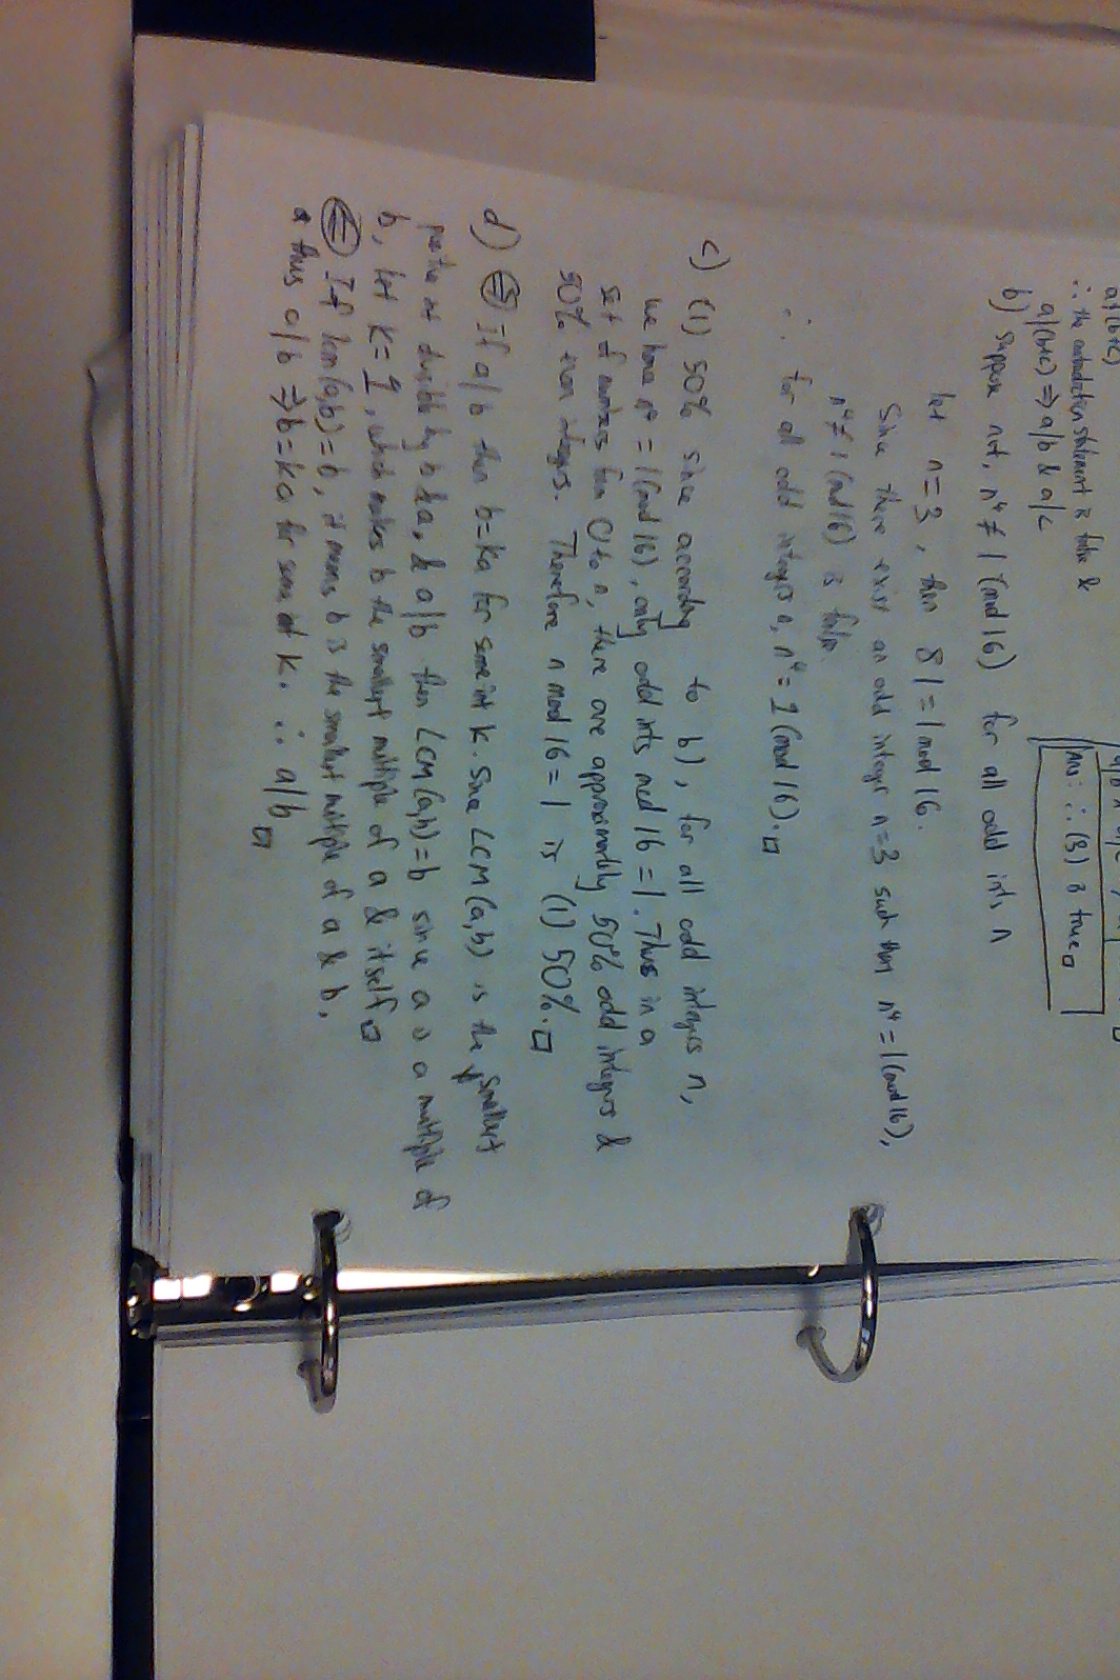 a∤(b+c)
∴ the contradiction statement is false &
a|(b+c) ⇒ a|b & a|c
Ans: ∴ (B) is true □
b) suppose not, n⁴ ≢ 1 (mod 16) for all odd ints n
let n=3, then 81 ≡ 1 mod 16.
Since there exist an odd integer n=3 such then n⁴ ≡ 1 (mod 16),
n⁴ ≢ 1 (mod 16) is false.
∴ for all odd integers n, n⁴ ≡ 1 (mod 16). □
c) (1) 50% since according to b), for all odd integers n,
we have n⁴ ≡ 1 (mod 16), only odd ints mod 16 = 1. Thus in a
set of numbers from 0 to n, there are approximately 50% odd integers &
50% even integers. Therefore n mod 16 = 1 is (1) 50%. □
d) ⇒ If a|b then b=ka for some int k. Since LCM(a,b) is the smallest
positive int divisible by b & a, & a|b then LCM(a,b)=b since a is a multiple of
b, let k=1, which makes b the smallest multiple of a & itself □
⇐ If lcm(a,b)=b, it means b is the smallest multiple of a & b,
thus a|b ⇒ b=ka for some int k. ∴ a|b □